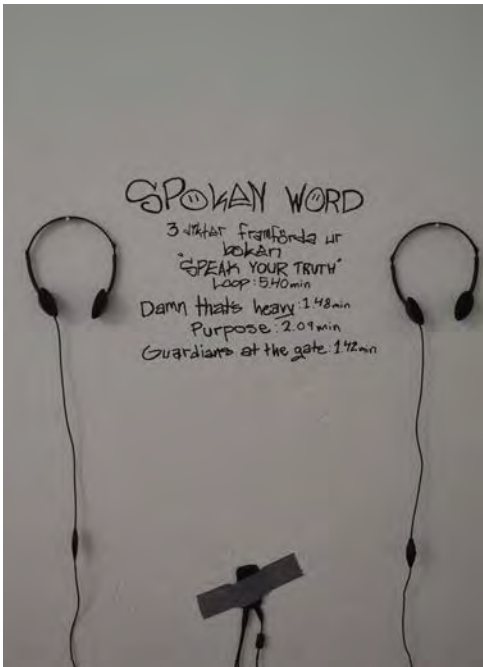 SPOKEN WORD
3 dikter framförda ur
boken
"SPEAK YOUR TRUTH"
Loop: 5.40min
Damn thats heavy: 1.48min
Purpose: 2.09min
Guardians at the gate: 1.42min